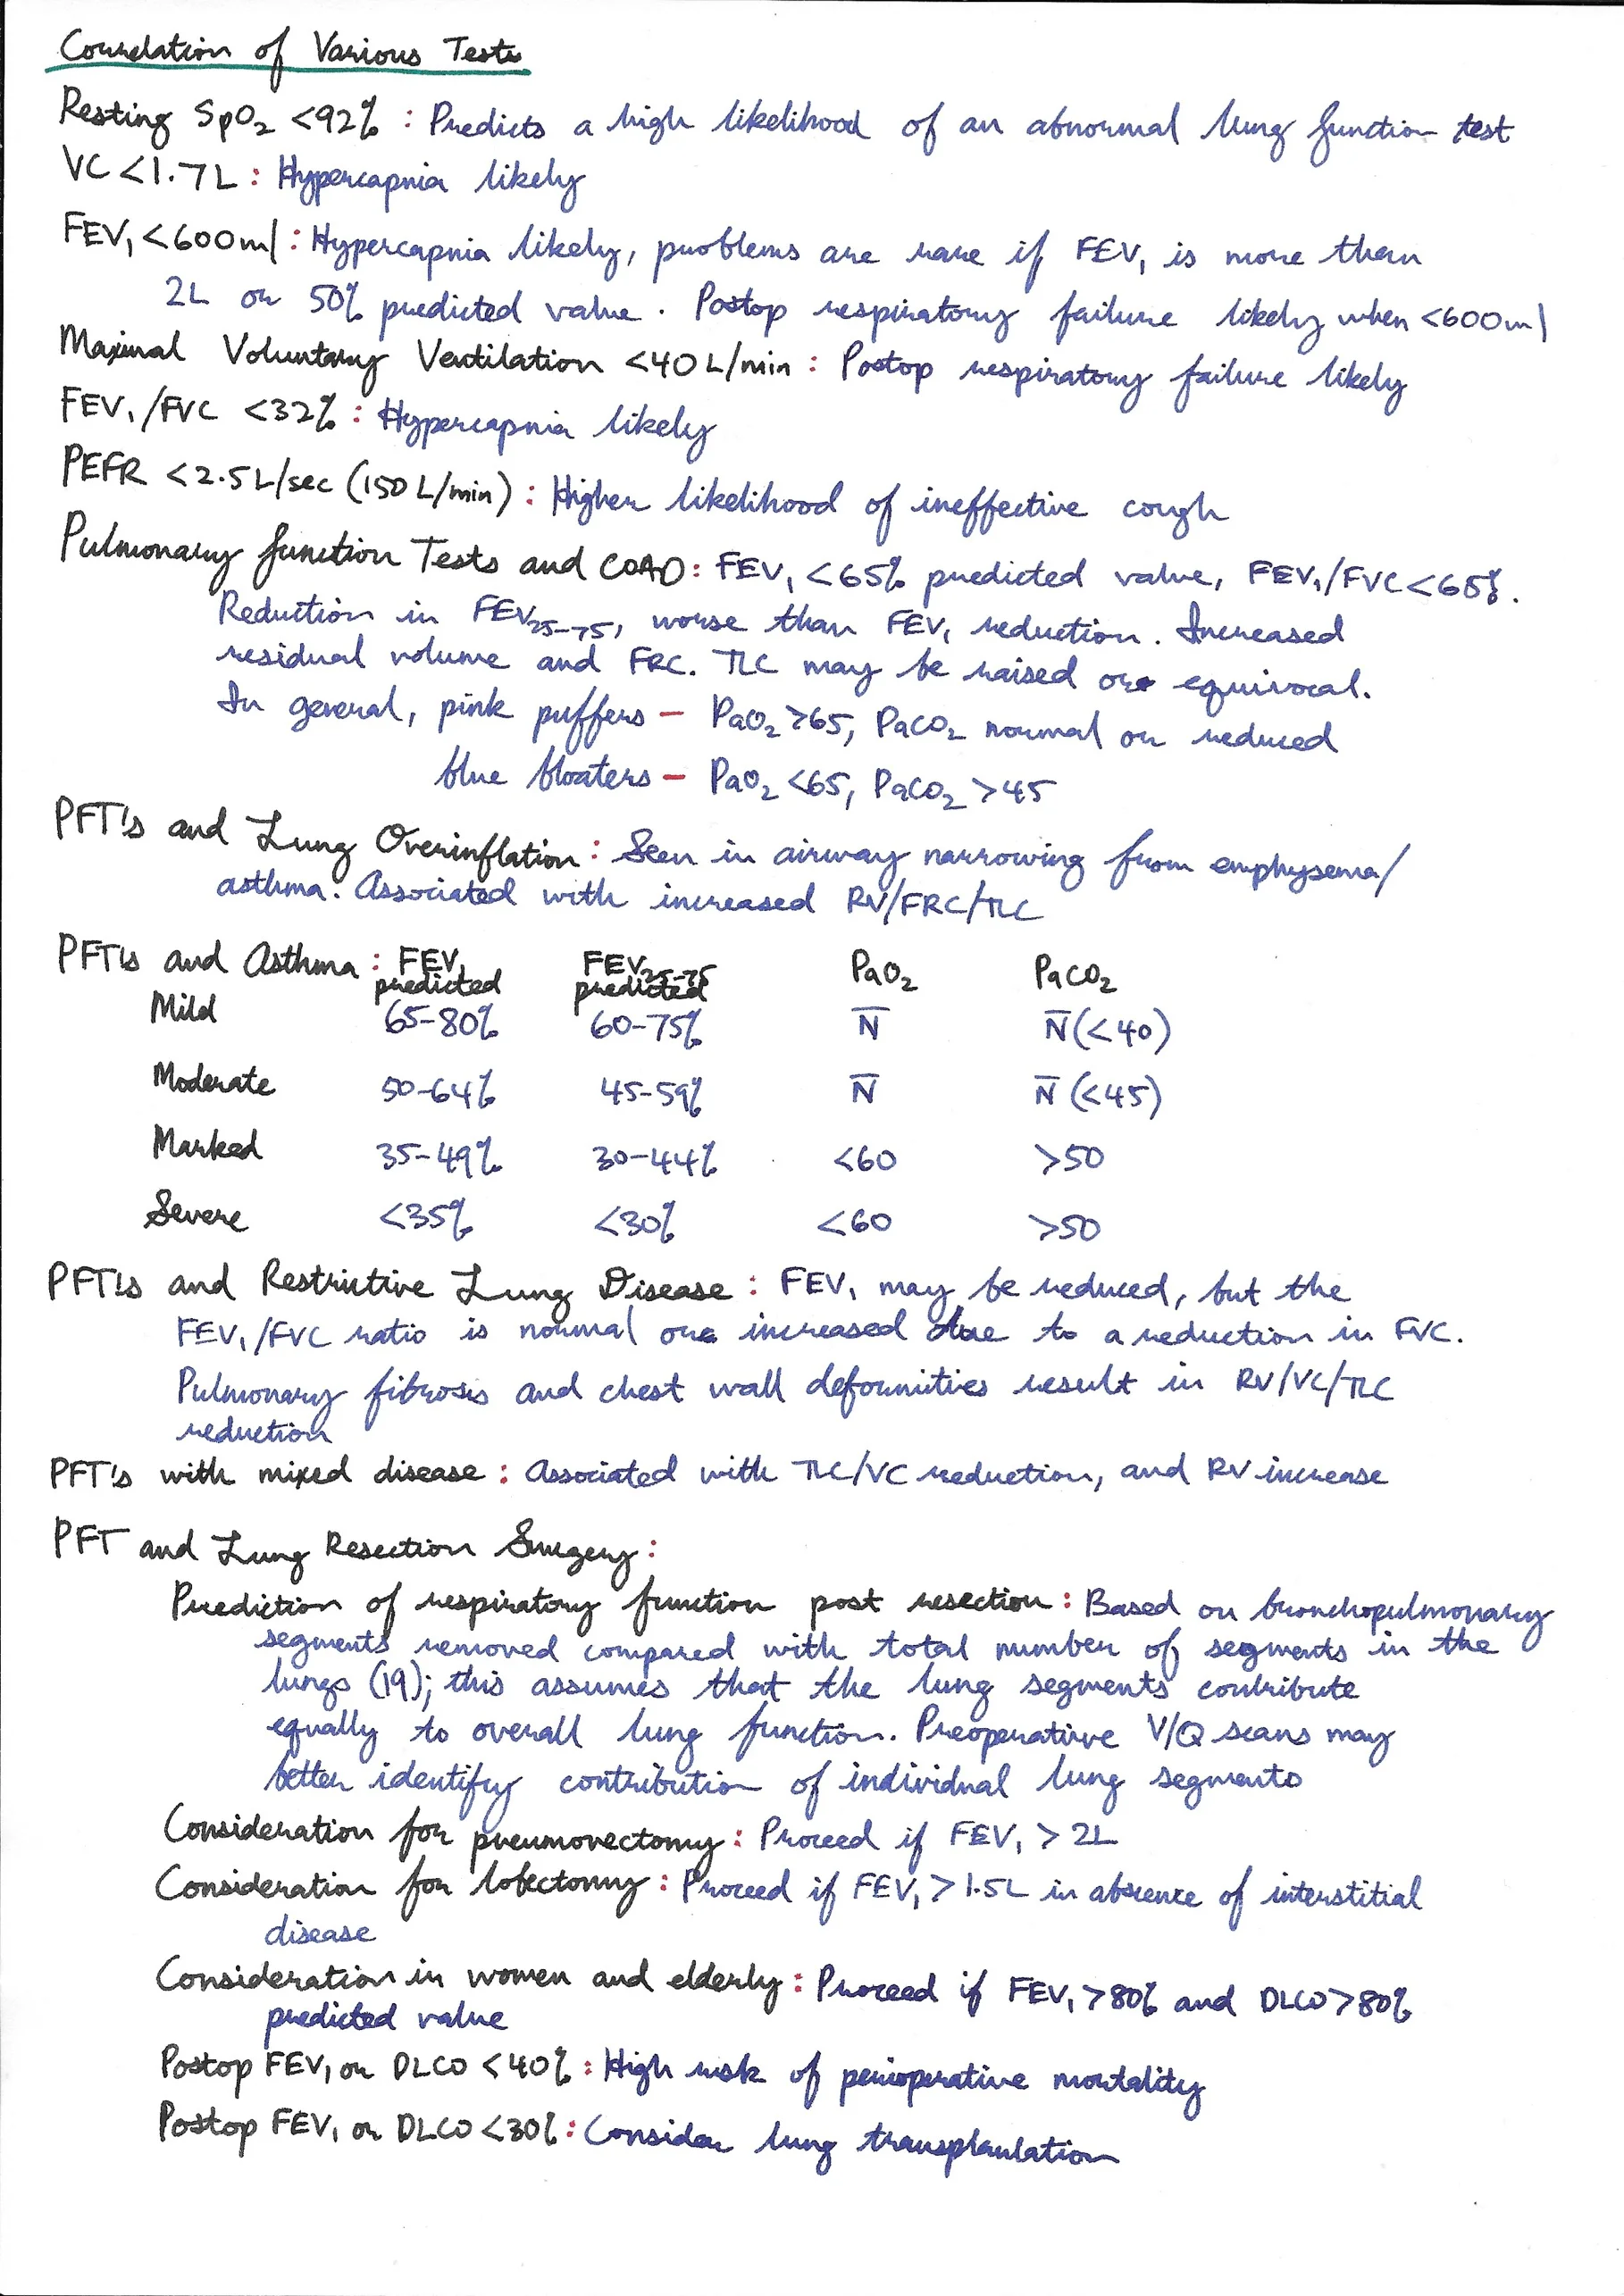 Correlation of Various Tests
Resting SpO₂ <92% : Predicts a high likelihood of an abnormal lung function test
VC <1.7L : Hypercapnia likely
FEV₁ <600ml : Hypercapnia likely, problems are rare if FEV₁ is more than
2L or 50% predicted value. Postop respiratory failure likely when <600ml
Maximal Voluntary Ventilation <40L/min : Postop respiratory failure likely
FEV₁/FVC <32% : Hypercapnia likely
PEFR <2.5L/sec (150L/min) : Higher likelihood of ineffective cough
Pulmonary function Tests and COAD : FEV₁ <65% predicted value, FEV₁/FVC <65%.
Reduction in FEV₂₅₋₇₅, worse than FEV₁ reduction. Increased
residual volume and FRC. TLC may be raised or equivocal.
In general, pink puffers – PaO₂ >65, PaCO₂ normal or reduced
blue bloaters – PaO₂ <65, PaCO₂ >45
PFT's and Lung Overinflation : Seen in airway narrowing from emphysema/
asthma. Associated with increased RV/FRC/TLC
PFT's and Asthma : FEV₁ predicted FEV₂₅₋₇₅ predicted PaO₂ PaCO₂
Mild 65-80% 60-75% N̅ N̅ (<40)
Moderate 50-64% 45-59% N̅ N̅ (<45)
Marked 35-49% 30-44% <60 >50
Severe <35% <30% <60 >50
PFT's and Restrictive Lung Disease : FEV₁ may be reduced, but the
FEV₁/FVC ratio is normal or increased due to a reduction in FVC.
Pulmonary fibrosis and chest wall deformities result in RV/VC/TLC
reduction
PFT's with mixed disease : Associated with TLC/VC reduction, and RV increase
PFT and Lung Resection Surgery :
Prediction of respiratory function post resection : Based on bronchopulmonary
segments removed compared with total number of segments in the
lungs (19); this assumes that the lung segments contribute
equally to overall lung function. Preoperative V/Q scans may
better identify contribution of individual lung segments
Consideration for pneumonectomy : Proceed if FEV₁ > 2L
Consideration for lobectomy : Proceed if FEV₁ > 1.5L in absence of interstitial
disease
Consideration in women and elderly : Proceed if FEV₁ >80% and DLCO >80%
predicted value
Postop FEV₁ or DLCO <40% : High risk of perioperative mortality
Postop FEV₁ or DLCO <30% : Consider lung transplantation